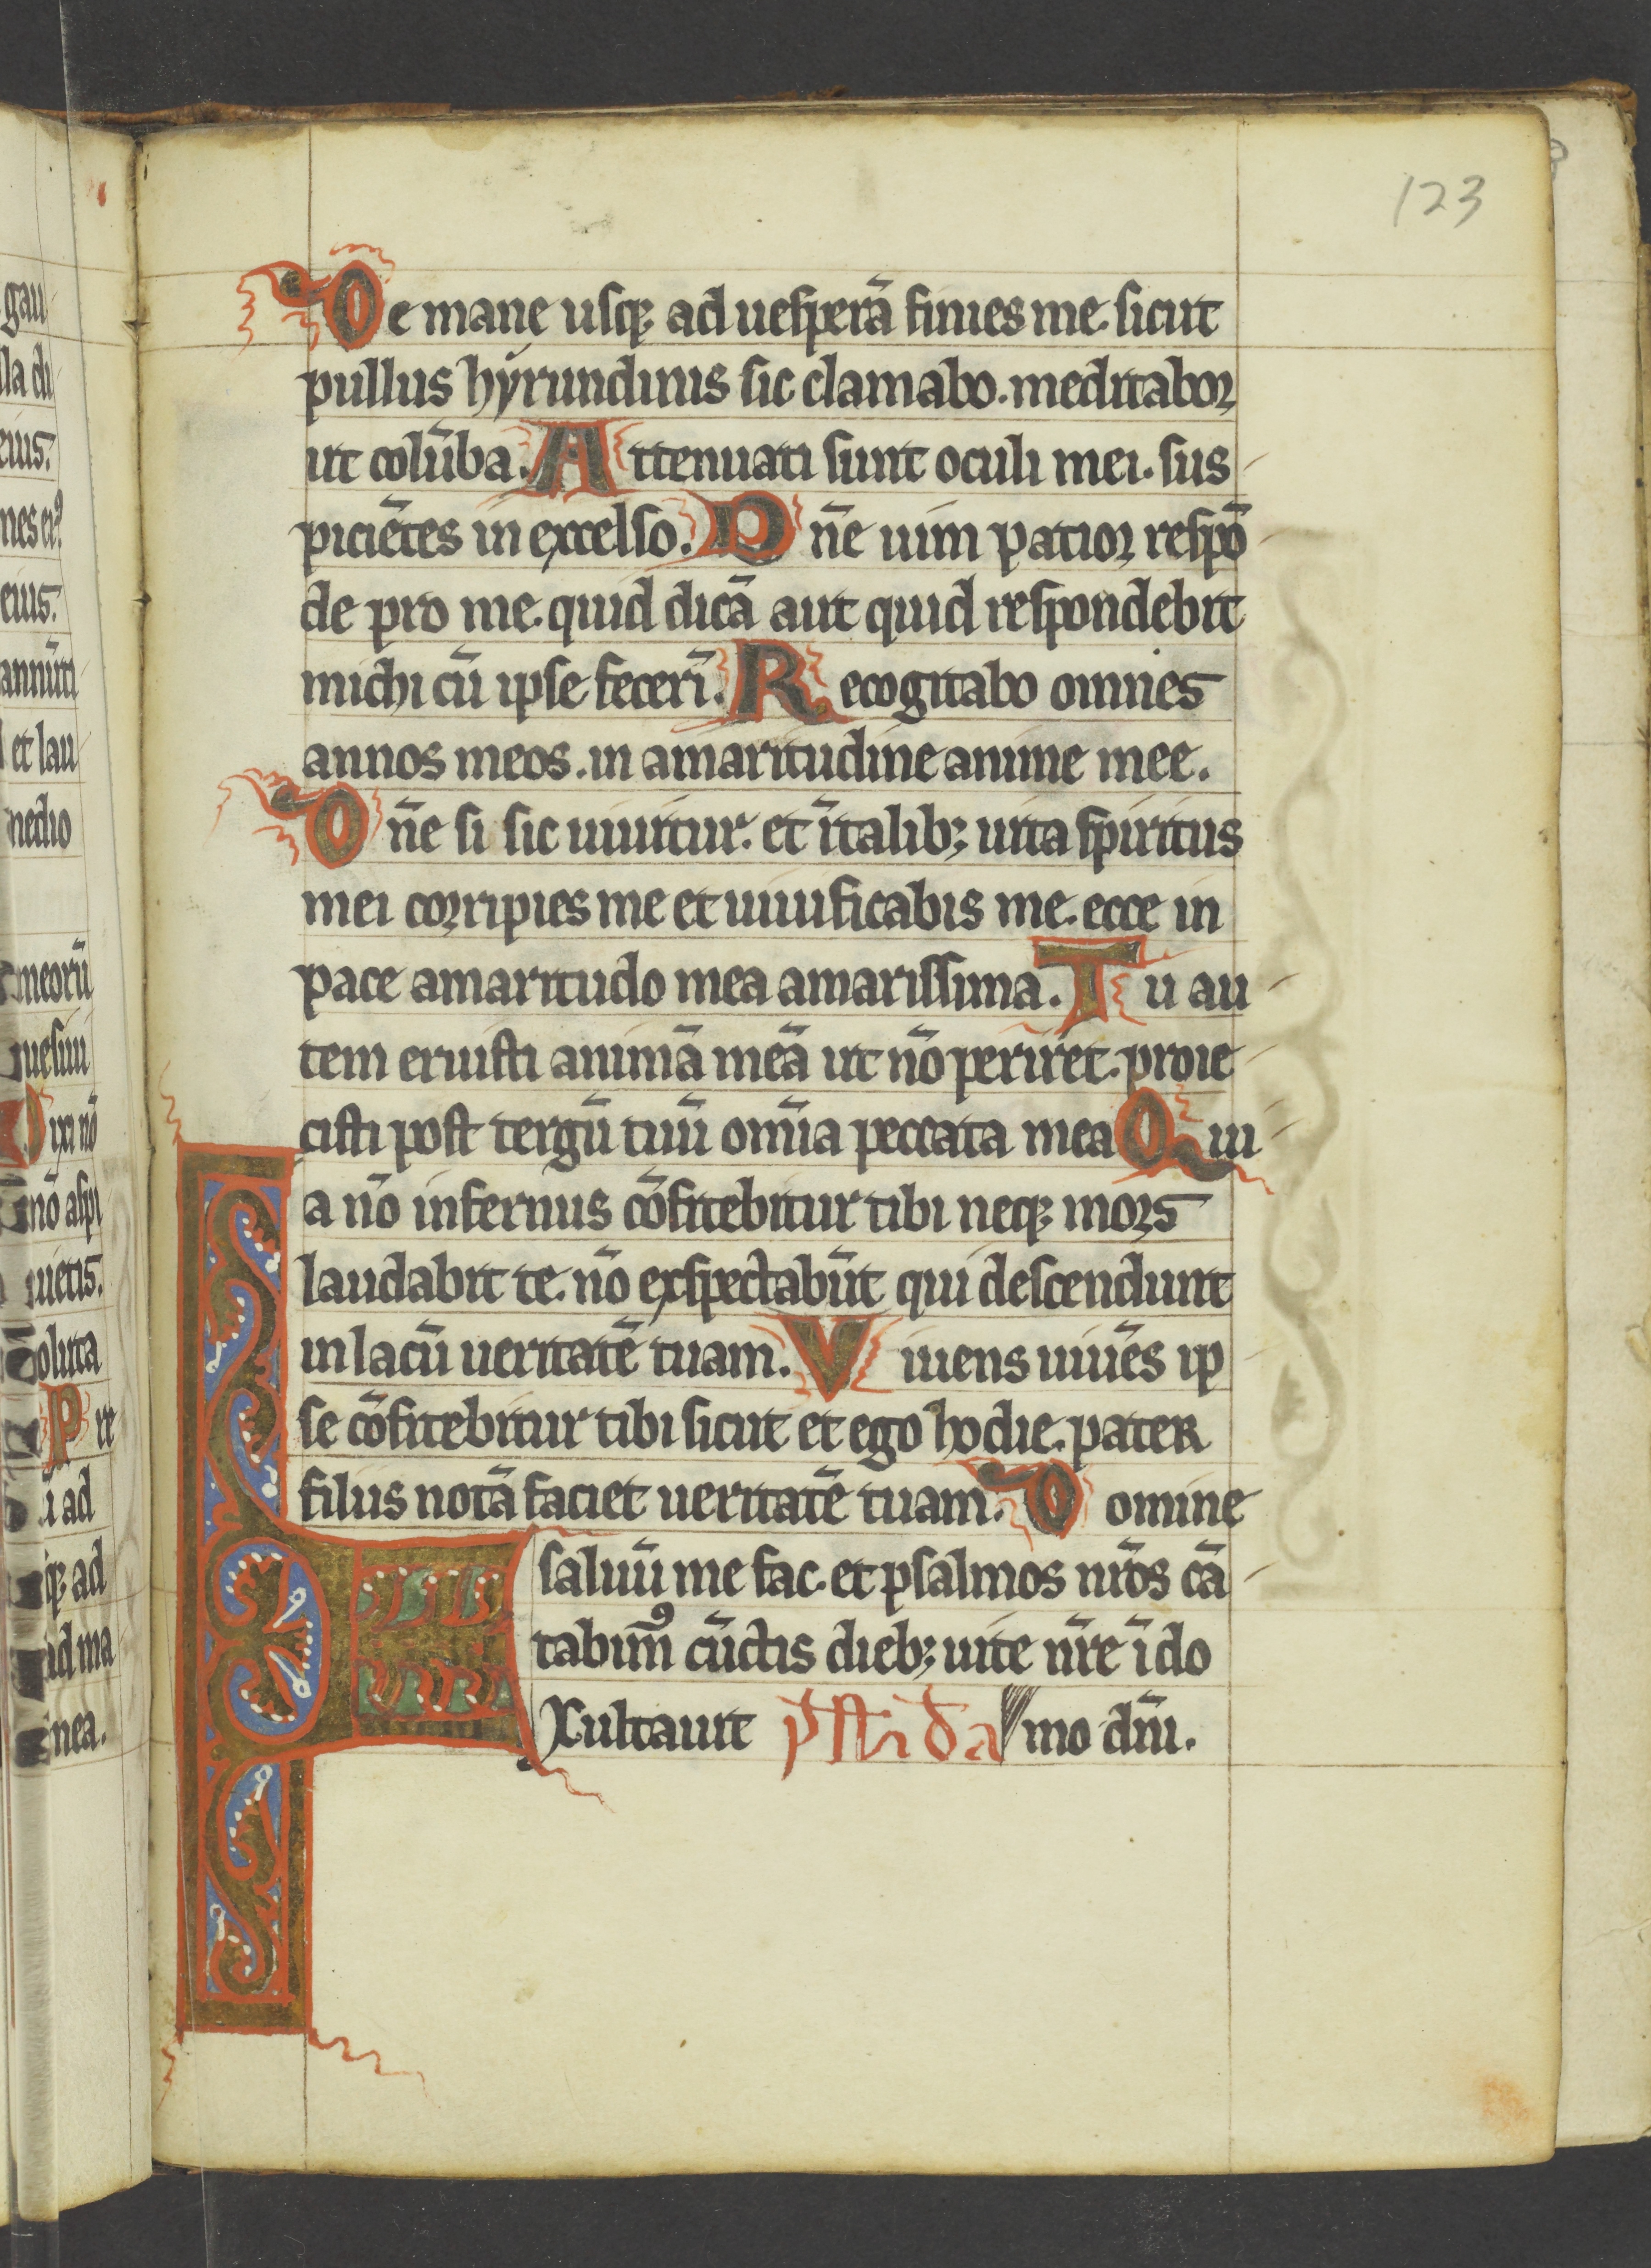 123
De mane usq; ad uesperā finies me. sicut
pullus hyrundinis sic clamabo. meditabor
ut colūba. Attenuati sunt oculi mei. sus
piciētes in excelso. Dn̄e uim patior respō
de pro me. quid dicā aut quid respondebit
michi cū ipse fecerī. Recogitabo omnes
annos meos. in amaritudine anime mee.
Dn̄e si sic uiuitur. et ītalib; uita spiritus
mei corripies me et uiuificabis me. ecce in
pace amaritudo mea amarissima. Tu au
tem eruisti animā meā ut nō periret. proie
cisti post tergū tuū omīa peccata mea Qui
a nō infernus cōfitebitur tibi neq; mors
laudabit te. nō exspectabūt qui descendunt
in lacū ueritatē tuam. Viuens uiuēs ip
se cōfitebitur tibi sicut et ego hodie. pater
filiis notā faciet ueritatē tuam. Domine
saluū me fac. et psalmos nr̄os cā
tabim᷒ cūctis dieb; uite nr̄e ī do
EXultauit mo dn̄i.
gau
la di
eius.
eius.
annūti
et lau
medio
meorū
Dixi nō
nō aspi
uietis.
oluta
Pre
ad
q; ad
ad ma
nea.